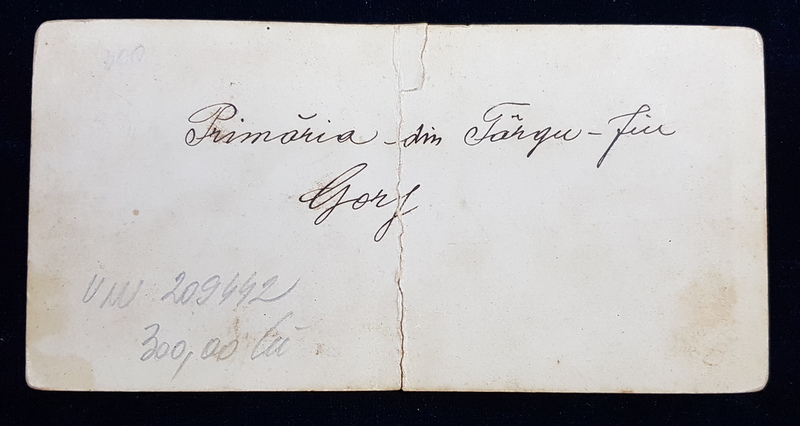 300
Primăria - din Târgu - Jiu
Gorj
VIII 209442
300,00 lei